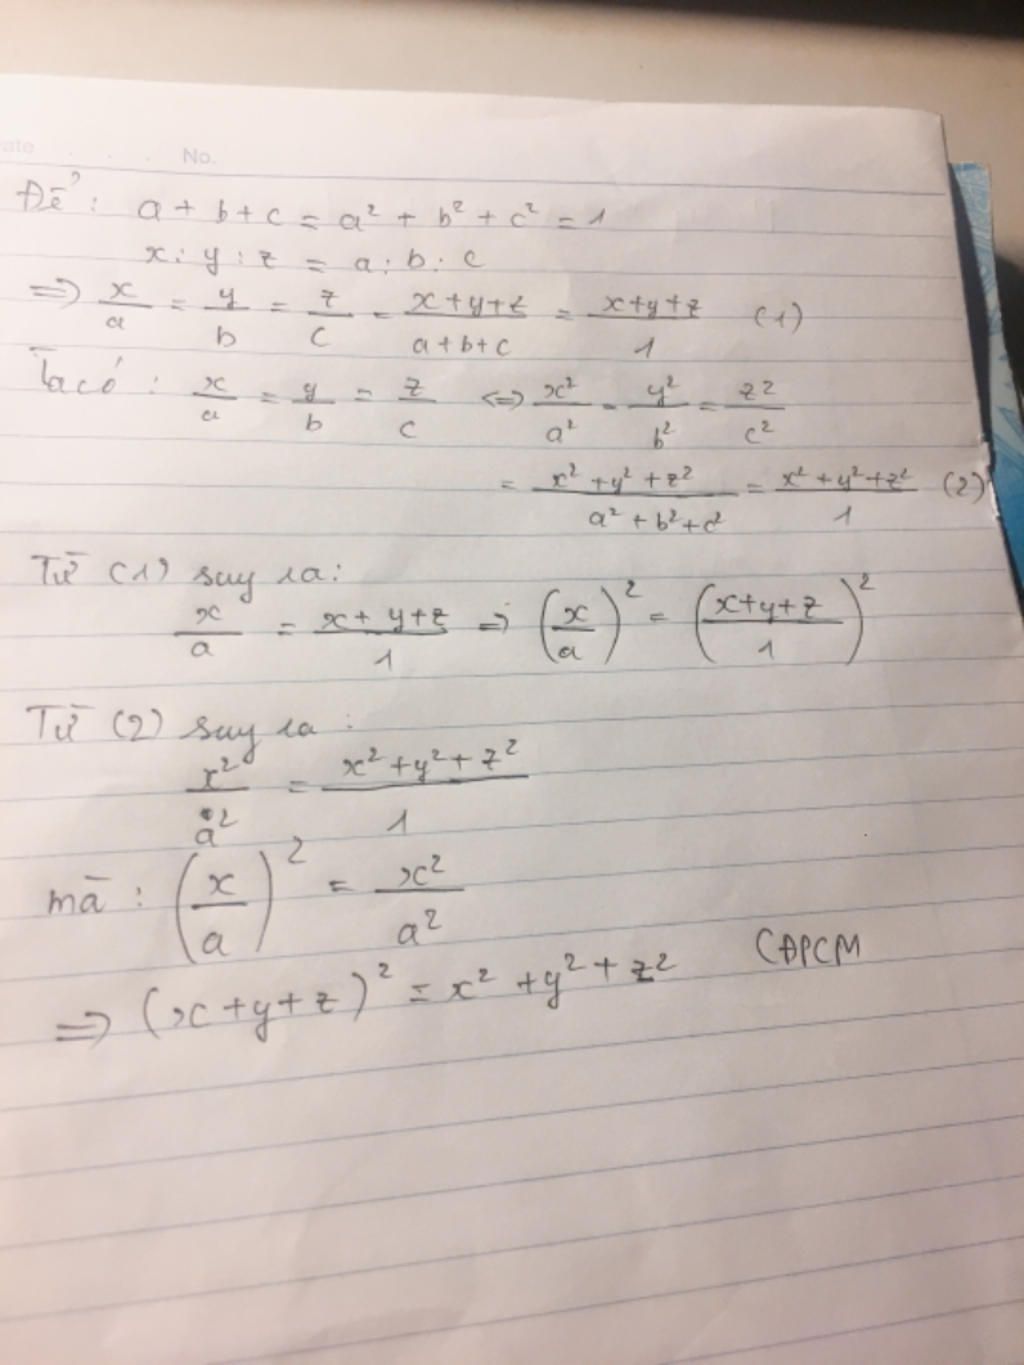 No.
Đề: a + b + c = a² + b² + c² = 1
x : y : z = a : b : c
=> x/a = y/b = z/c = (x+y+z)/(a+b+c) = (x+y+z)/1 (1)
Ta có: x/a = y/b = z/c <=> x²/a² = y²/b² = z²/c²
= (x²+y²+z²)/(a²+b²+c²) = (x²+y²+z²)/1 (2)
Từ (1) suy ra:
x/a = (x+y+z)/1 => (x/a)² = ((x+y+z)/1)²
Từ (2) suy ra:
x²/a² = (x²+y²+z²)/1
mà: (x/a)² = x²/a²
=> (x+y+z)² = x²+y²+z² CĐPCM